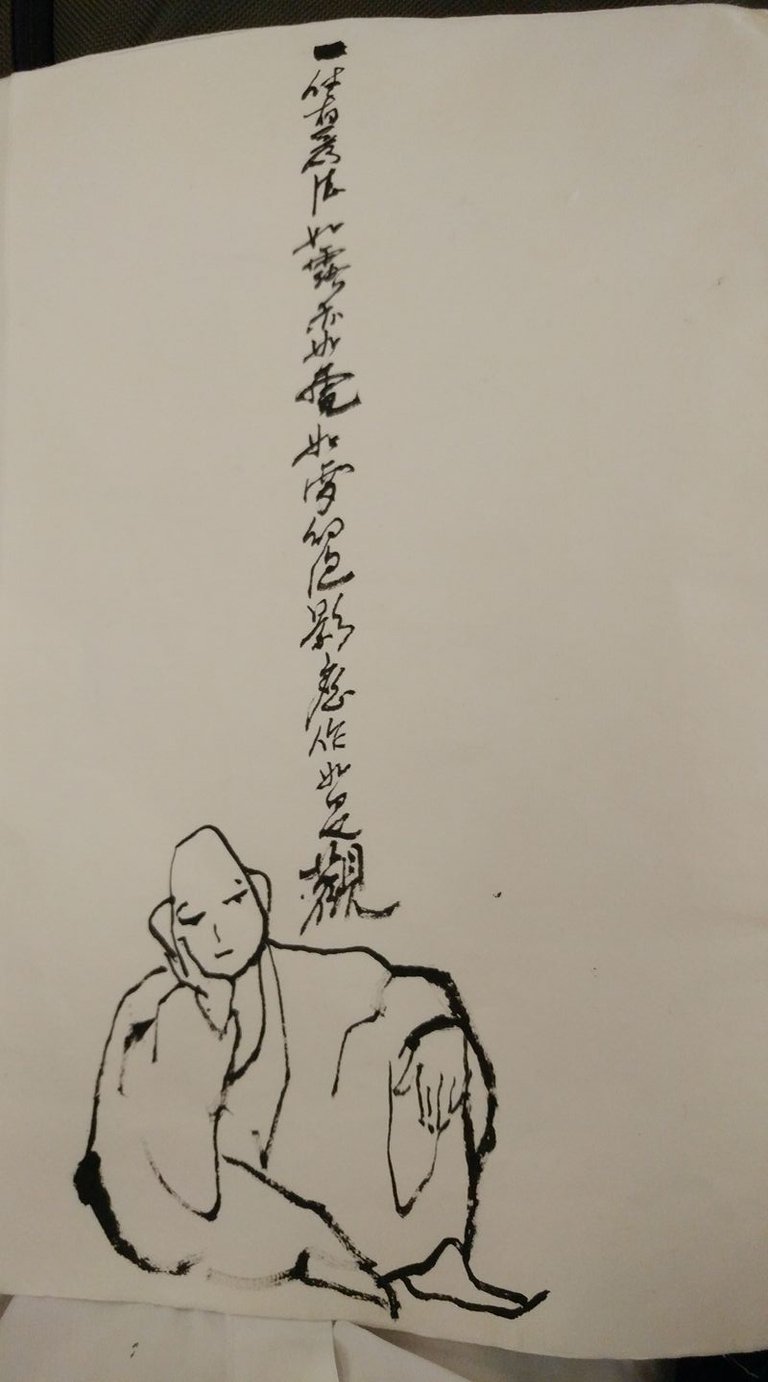 一切有為法如露亦如電如夢幻泡影應作如是觀